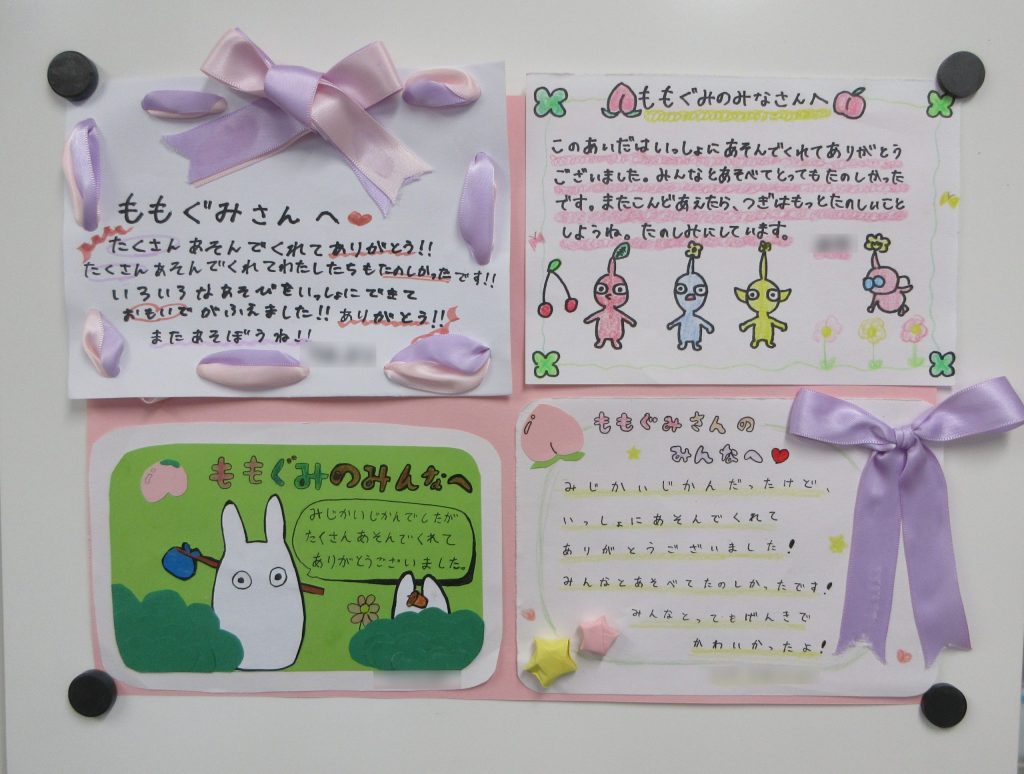 ももぐみさんへ
たくさんあそんでくれてありがとう!!
たくさんあそんでくれてわたしたちもたのしかったです!!
いろいろなあそびをいっしょにできて
おもいでがふえました!! ありがとう!!
またあそぼうね!!
ももぐみのみなさんへ
このあいだはいっしょにあそんでくれてありがとう
ございました。みんなとあそべてとってもたのしかった
です。またこんどあえたら、つぎはもっとたのしいこと
しようね。たのしみにしています。
ももぐみのみんなへ
みじかいじかんでしたが
たくさんあそんでくれて
ありがとうございました。
ももぐみさんの
みんなへ
みじかいじかんだったけど、
いっしょにあそんでくれて
ありがとうございました!
みんなとあそべてたのしかったです!
みんなとってもげんきで
かわいかったよ!